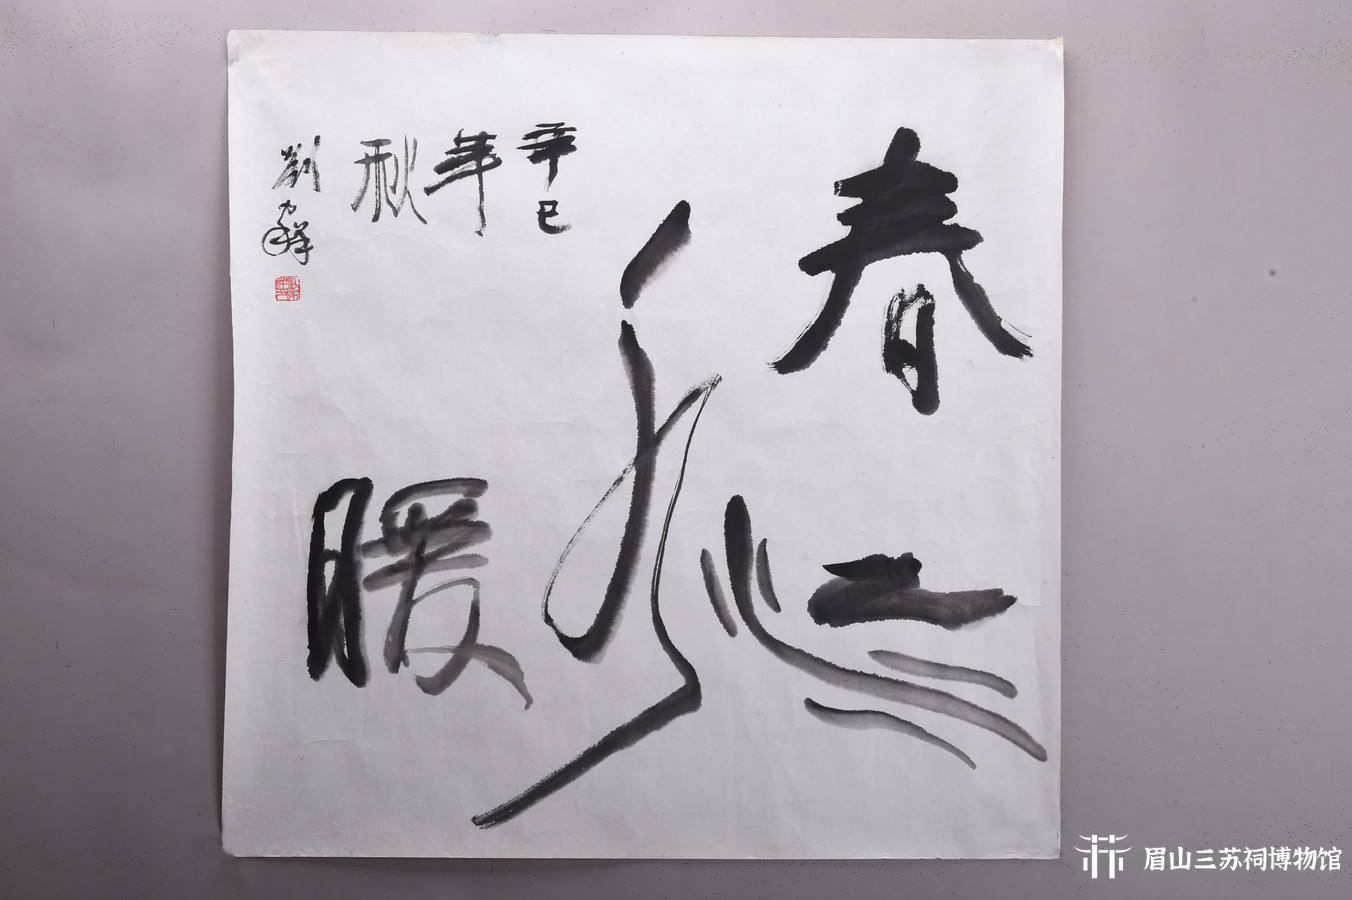 春江
水
暖
辛巳
年
秋
劉
眉山三苏祠博物馆